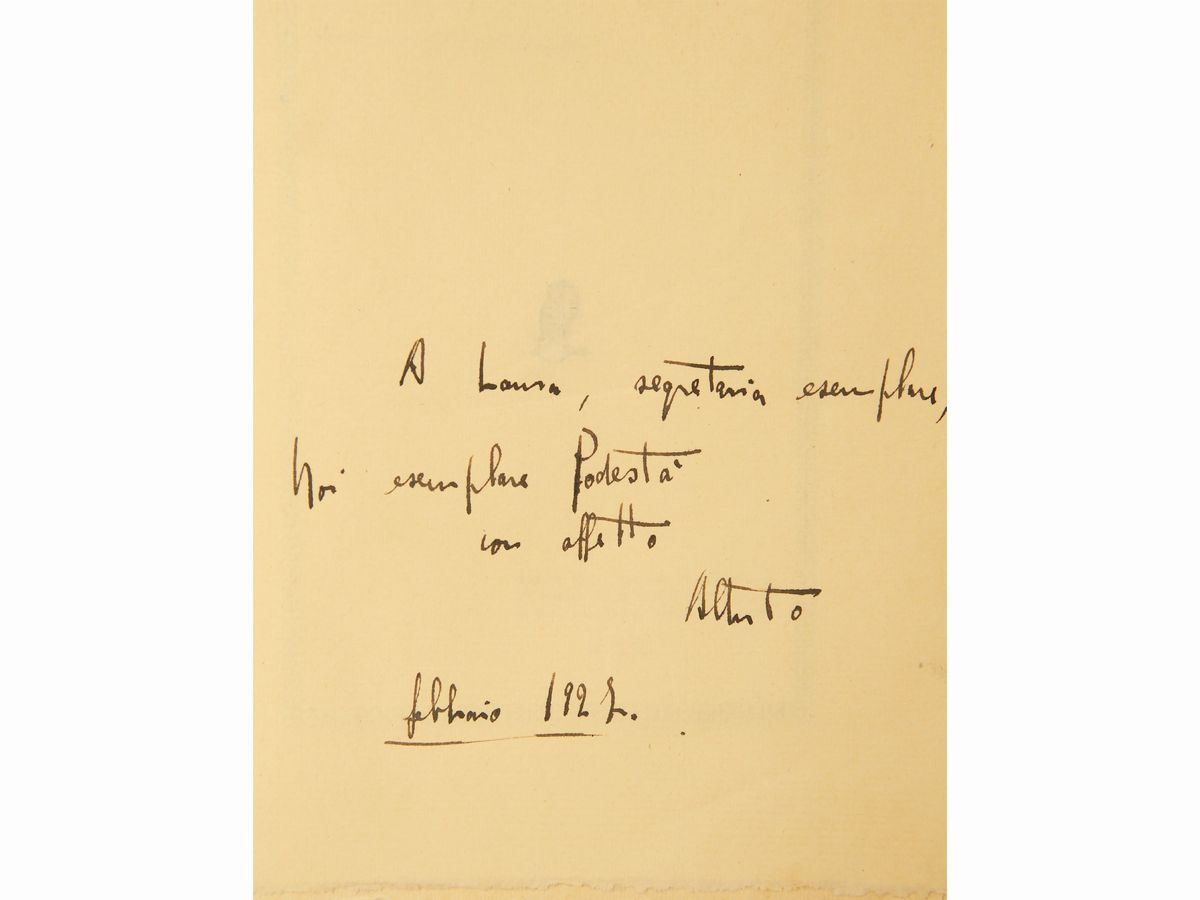 A Laura, segretaria esemplare,
esemplare Podestà
con affetto
Alberto
febbraio 1927.